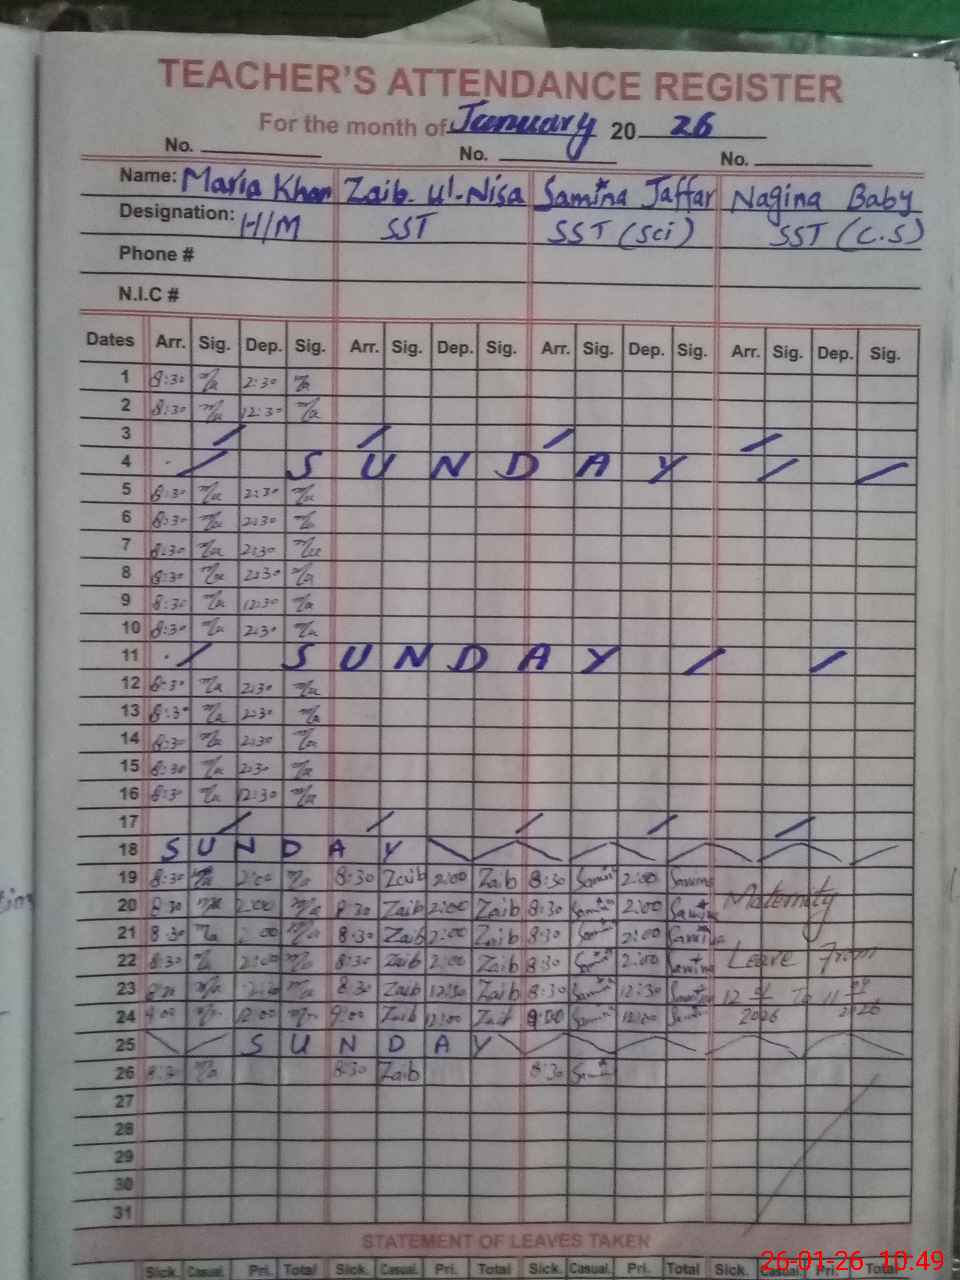 TEACHER'S ATTENDANCE REGISTER
For the month of January 20 26
No. No. No.
Name: Maria Khan Zaib-ul-Nisa Samina Jaffar Nagina Baby
Designation: H/M SST SST (Sci) SST (C.S)
Phone #
N.I.C #
Dates Arr. Sig. Dep. Sig. Arr. Sig. Dep. Sig. Arr. Sig. Dep. Sig. Arr. Sig. Dep. Sig.
1 8:30 2:30
2 8:30 12:30
3
4 SUNDAY
5 8:30 2:30
6 8:30 2:30
7 8:30 2:30
8 8:30 2:30
9 8:30 12:30
10 8:30 2:30
11 SUNDAY
12 8:30 2:30
13 8:30 2:30
14 8:30 2:30
15 8:30 2:30
16 8:30 12:30
17
18 SUNDAY
19 8:30 2:00 8:30 Zaib 2:00 Zaib 8:30 Samina 2:00 Samina
20 8:30 2:00 8:30 Zaib 2:00 Zaib 8:30 Samina 2:00 Samina Maternity
21 8:30 2:00 8:30 Zaib 2:00 Zaib 8:30 Samina 2:00 Samina
22 8:30 2:00 8:30 Zaib 2:00 Zaib 8:30 Samina 2:00 Samina Leave From
23 8:30 Zaib 12:30 Zaib 8:30 Samina 12:30 Samina 12 01 2026 To 11
24 9:00 12:00 9:00 Zaib 12:00 Zaib 9:00 Samina 12:00
25 SUNDAY
26 8:30 8:30 Zaib 8:30 Samina
27
28
29
30
31
STATEMENT OF LEAVES TAKEN
Sick. Casual. Pri. Total Sick. Casual. Pri. Total Sick. Casual. Pri. Total Sick. Casual. Pri. Total
26-01-26 10:49